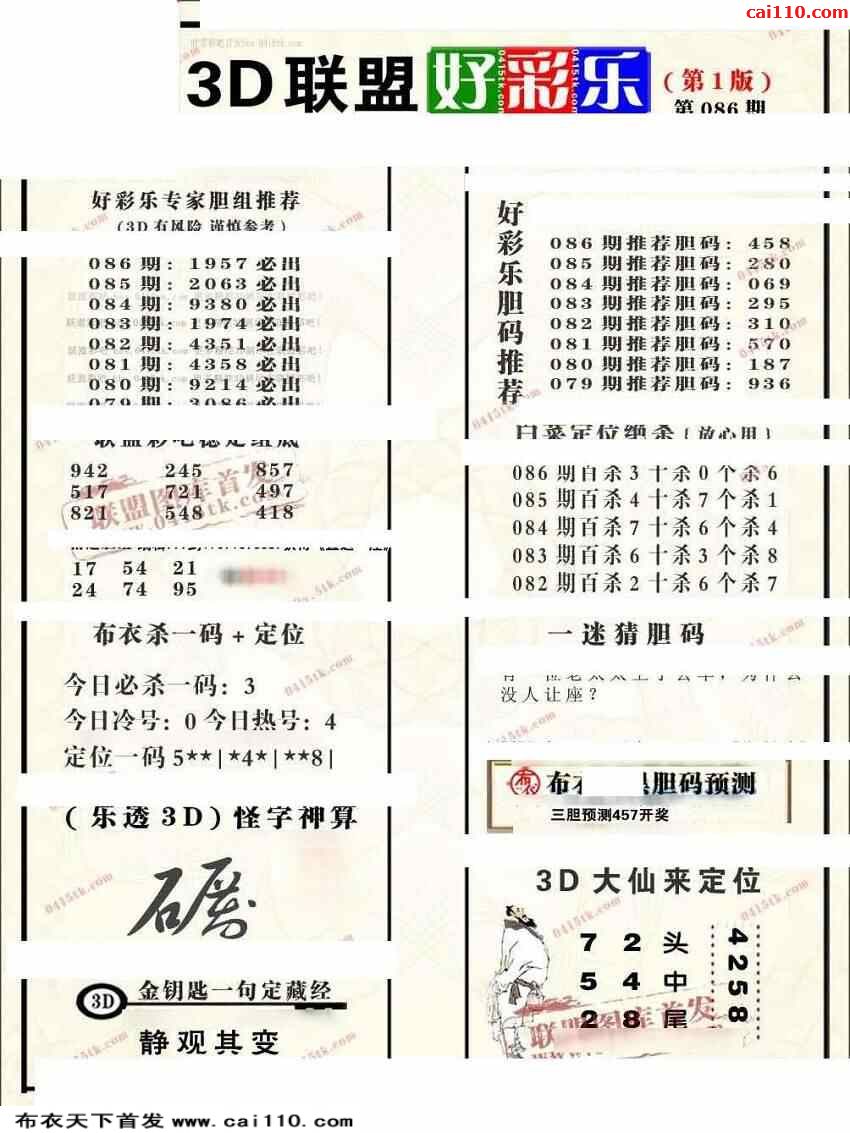 cai110.com
3D联盟好彩乐(第1版)
第086期
好彩乐专家胆组推荐
(3D有风险 谨慎参考)
086期: 1957必出
085期: 2063必出
084期: 9380必出
083期: 1974必出
082期: 4351必出
081期: 4358必出
080期: 9214必出
079期: 3086必出
942 245 857
517 721 497
821 548 418
17 54 21
24 74 95
布衣杀一码+定位
今日必杀一码: 3
今日冷号: 0 今日热号: 4
定位一码 5**|*4*|**8|
(乐透3D)怪字神算
3D 金钥匙一句定藏经
静观其变
好彩乐胆码推荐
086期推荐胆码: 458
085期推荐胆码: 280
084期推荐胆码: 069
083期推荐胆码: 295
082期推荐胆码: 310
081期推荐胆码: 570
080期推荐胆码: 187
079期推荐胆码: 936
086期百杀3十杀0个杀6
085期百杀4十杀7个杀1
084期百杀7十杀6个杀4
083期百杀6十杀3个杀8
082期百杀2十杀6个杀7
一迷猜胆码
没人让座?
胆码预测
三胆预测457开奖
3D大仙来定位
7 2 头
5 4 中
2 8 尾
4258
联盟图库首发
0415tk.com
布衣天下首发 www.cai110.com